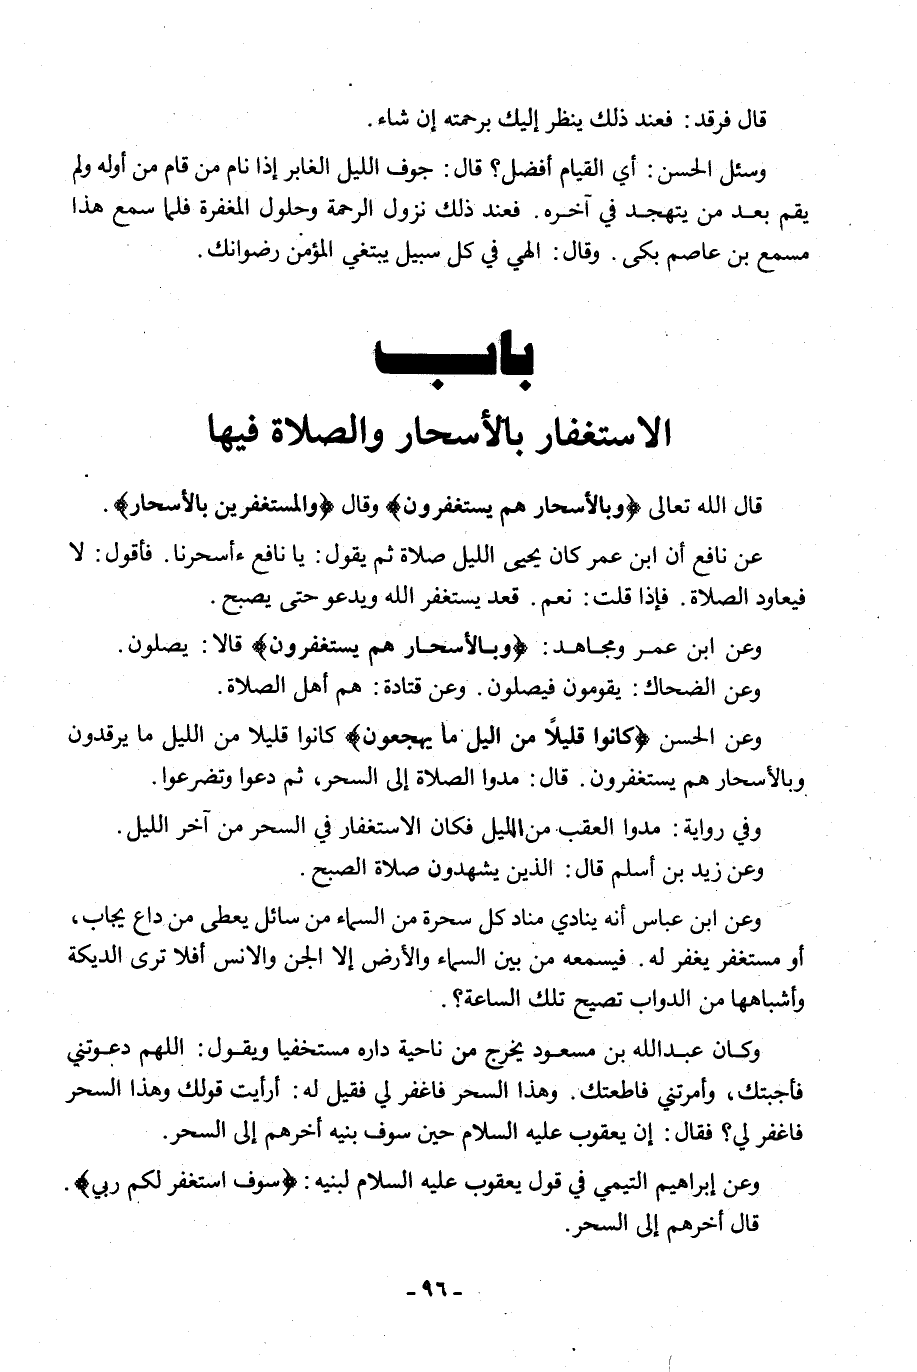 قال فرقد: فعند ذلك ينظر إليك برحمته إن شاء.
وسئل الحسن: أي القيام أفضل؟ قال: جوف الليل الغابر إذا نام من قام من أوله ولم
يقم بعد من يتهجد في آخره. فعند ذلك نزول الرحمة وحلول المغفرة فلما سمع هذا
مسمع بن عاصم بكى. وقال: الهي في كل سبيل يبتغي المؤمن رضوانك.
باب
الاستغفار بالأسحار والصلاة فيها
قال الله تعالى ﴿وبالأسحار هم يستغفرون﴾ وقال ﴿والمستغفرين بالأسحار﴾.
عن نافع أن ابن عمر كان يحيى الليل صلاة ثم يقول: يا نافع ءأسحرنا. فأقول: لا
فيعاود الصلاة. فإذا قلت: نعم. قعد يستغفر الله ويدعو حتى يصبح.
وعن ابن عمر ومجاهد: ﴿وبالأسحار هم يستغفرون﴾ قالا: يصلون.
وعن الضحاك: يقومون فيصلون. وعن قتادة: هم أهل الصلاة.
وعن الحسن ﴿كانوا قليلاً من اليل ما يهجعون﴾ كانوا قليلا من الليل ما يرقدون
وبالأسحار هم يستغفرون. قال: مدوا الصلاة إلى السحر، ثم دعوا وتضرعوا.
وفي رواية: مدوا العقب من الليل فكان الاستغفار في السحر من آخر الليل.
وعن زيد بن أسلم قال: الذين يشهدون صلاة الصبح.
وعن ابن عباس أنه ينادي مناد كل سحرة من السماء من سائل يعطى من داع يجاب،
أو مستغفر يغفر له. فيسمعه من بين السماء والأرض إلا الجن والانس أفلا ترى الديكة
وأشباهها من الدواب تصيح تلك الساعة؟.
وكان عبدالله بن مسعود يخرج من ناحية داره مستخفيا ويقول: اللهم دعوتني
فأجبتك، وأمرتني فاطعتك. وهذا السحر فاغفر لي فقيل له: أرأيت قولك وهذا السحر
فاغفر لي؟ فقال: إن يعقوب عليه السلام حين سوف بنيه أخرهم إلى السحر.
وعن إبراهيم التيمي في قول يعقوب عليه السلام لبنيه: ﴿سوف استغفر لكم ربي﴾.
قال أخرهم إلى السحر.
- ٩٦ -